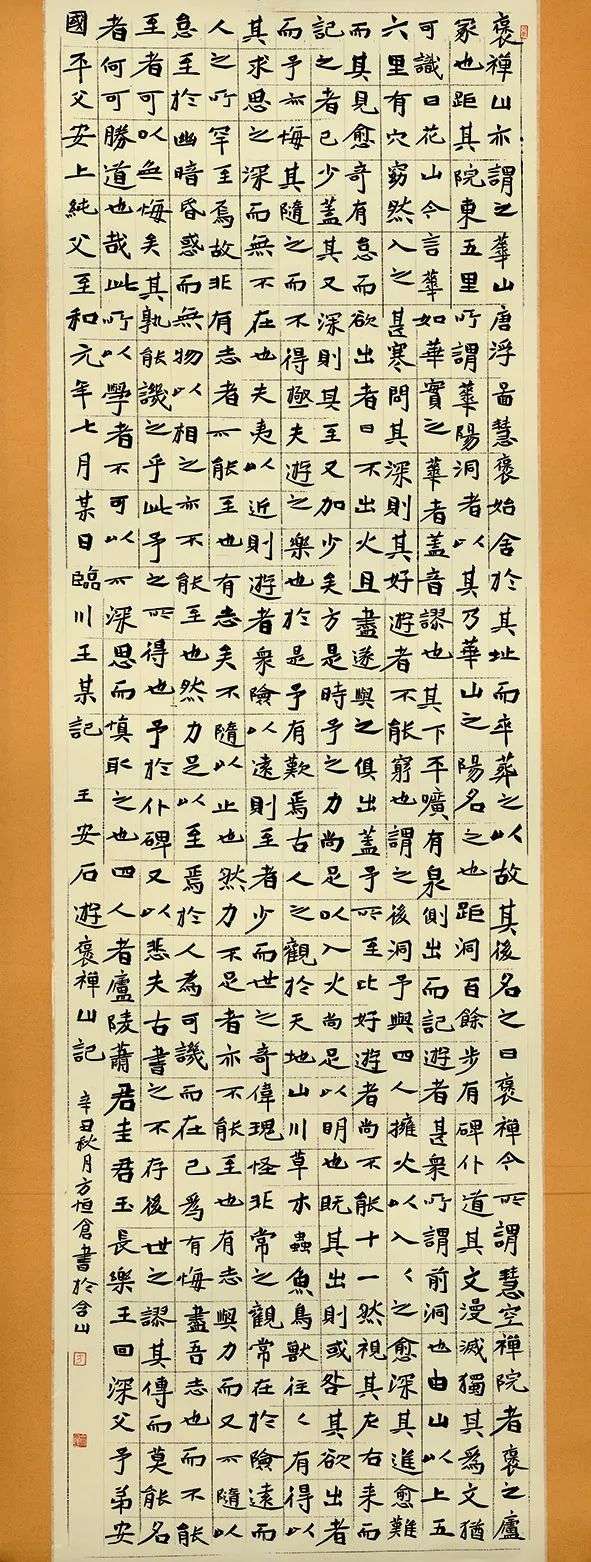 褒禪山亦謂之華山唐浮啚慧褒始舍於其址而卒葬之以故其後名之曰褒禪今所謂慧空禪院者褒之廬
冢也距其院東五里所謂華陽洞者以其乃華山之陽名之也距洞百餘步有碑仆道其文漫滅獨其爲文猶
可識曰花山今言華如華實之華者蓋音謬也其下平曠有泉側出而記遊者甚衆所謂前洞也由山以上五
六里有穴窈然入之甚寒問其深則其好遊者不能窮也謂之後洞予與四人擁火以入々之愈深其進愈難
而其見愈奇有怠而欲出者曰不出火且盡遂與之俱出蓋予所至比好遊者尚不能十一然視其左右来而
記之者已少蓋其又深則其至又加少矣方是時予之力尚足以入火尚足以明也既其出則或咎其欲出者
而予亦悔其隨之而不得極夫遊之樂也於是予有歎焉古人之觀於天地山川草木蟲魚鳥獸往々有得以
其求思之深而無不在也夫夷以近則遊者衆險以遠則至者少而世之奇偉瑰怪非常之觀常在於險遠而
人之所罕至焉故非有志者不能至也有志矣不隨以止也然力不足者亦不能至也有志與力而又不隨以
怠至於幽暗昏惑而無物以相之亦不能至也然力足以至焉於人為可譏而在己爲有悔盡吾志也而不能
至者可以無悔矣其孰能譏之乎此予之所得也予於仆碑又以悲夫古書之不存後世之謬其傳而莫能名
者何可勝道也哉此所以學者不可以不深思而慎取之也四人者廬陵蕭君圭君玉長樂王回深父予弟安
國平父安上純父至和元年七月某日臨川王某記 王安石遊褒禪山記 辛丑秋月方恒倉書於含山